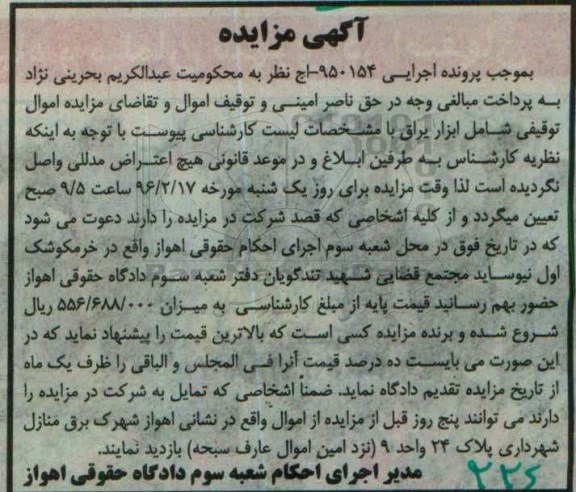 آگهی مزایده
بموجب پرونده اجرایی ۹۵۰۱۵۴-اج نظر به محکومیت عبدالکریم بحرینی نژاد
به پرداخت مبالغی وجه در حق ناصر امینی و توقیف اموال و تقاضای مزایده اموال
توقیفی شامل ابزار یراق با مشخصات لیست کارشناسی پیوست با توجه به اینکه
نظریه کارشناس به طرفین ابلاغ و در موعد قانونی هیچ اعتراض مدللی واصل
نگردیده است لذا وقت مزایده برای روز یک شنبه مورخه ۹۶/۲/۱۷ ساعت ۹/۵ صبح
تعیین میگردد و از کلیه اشخاصی که قصد شرکت در مزایده را دارند دعوت می شود
که در تاریخ فوق در محل شعبه سوم اجرای احکام حقوقی اهواز واقع در خرمکوشک
اول نیوساید مجتمع قضایی شهید تندگویان دفتر شعبه سوم دادگاه حقوقی اهواز
حضور بهم رسانید قیمت پایه از مبلغ کارشناسی به میزان ۵۵۶/۶۸۸/۰۰۰ ریال
شروع شده و برنده مزایده کسی است که بالاترین قیمت را پیشنهاد نماید که در
این صورت می بایست ده درصد قیمت آنرا فی المجلس و الباقی را ظرف یک ماه
از تاریخ مزایده تقدیم دادگاه نماید. ضمناً اشخاصی که تمایل به شرکت در مزایده را
دارند می توانند پنج روز قبل از مزایده از اموال واقع در نشانی اهواز شهرک برق منازل
شهرداری پلاک ۲۴ واحد ۹ (نزد امین اموال عارف سبحه) بازدید نمایند.
مدیر اجرای احکام شعبه سوم دادگاه حقوقی اهواز